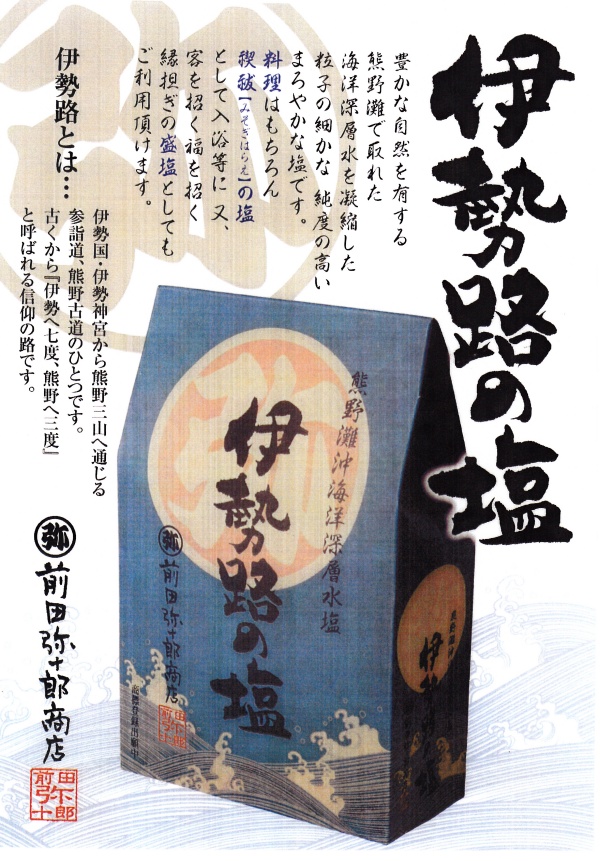 伊勢路の塩
豊かな自然を有する
熊野灘で取れた
海洋深層水を凝縮した
粒子の細かな 純度の高い
まろやかな塩です。
料理はもちろん
禊祓【みそぎはらえ】の塩
として入浴等に 又、
客を招く福を招く
縁担ぎの盛塩としても
ご利用頂けます。
伊勢路とは…
伊勢国・伊勢神宮から熊野三山へ通じる
参詣道、熊野古道のひとつです。
古くから『伊勢へ七度、熊野へ三度』
と呼ばれる信仰の路です。
弥
熊野灘沖海洋深層水塩
伊勢路の塩
弥 前田弥十郎商店
商標登録出願中
伊勢路の塩
弥 前田弥十郎商店